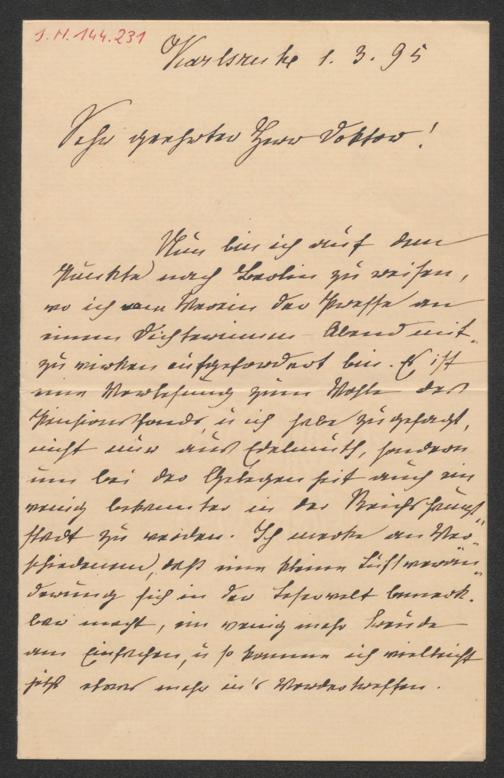 J.N. 144.231
Karlsruhe 1. 3. 95
Sehr geehrter Herr Doktor!
Nun bin ich auf dem
Punkte nach Berlin zu reisen,
wo ich vom Verein der Presse an
einem Dichterinnen-Abend mit-
zu wirken aufgefordert bin. Es ist
eine Vorlesung zum Wohle des
Pensionsfonds, u ich habe zugesagt,
nicht nur aus Edelmuth, sondern
um bei der Gelegenheit auch ein
wenig bekannter in der Reichshaupt-
stadt zu werden. Ich merke an Ver-
schiedenem, daß eine kleine Luftverän-
derung sich in der Lesewelt bemerk-
bar macht, ein wenig mehr Freude
am Einfachen, u so komme ich vielleicht
jetzt etwas mehr in's Vordertreffen.